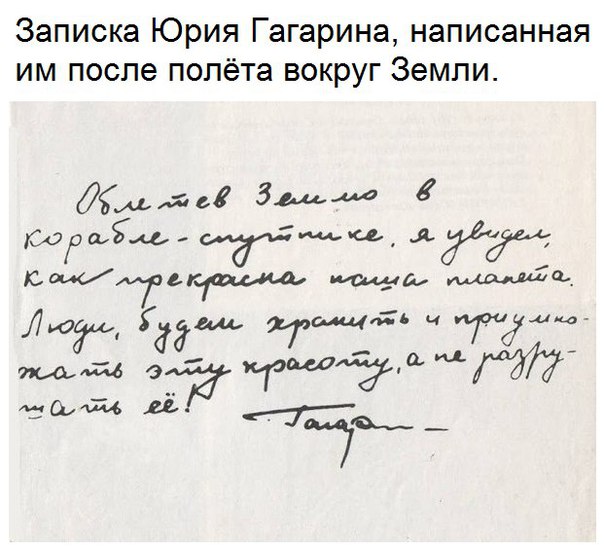 Записка Юрия Гагарина, написанная
им после полёта вокруг Земли.
Облетев Землю в
корабле-спутнике, я увидел,
как прекрасна наша планета.
Люди, будем хранить и приумно-
жать эту красоту, а не разру-
шать её!
Гагарин